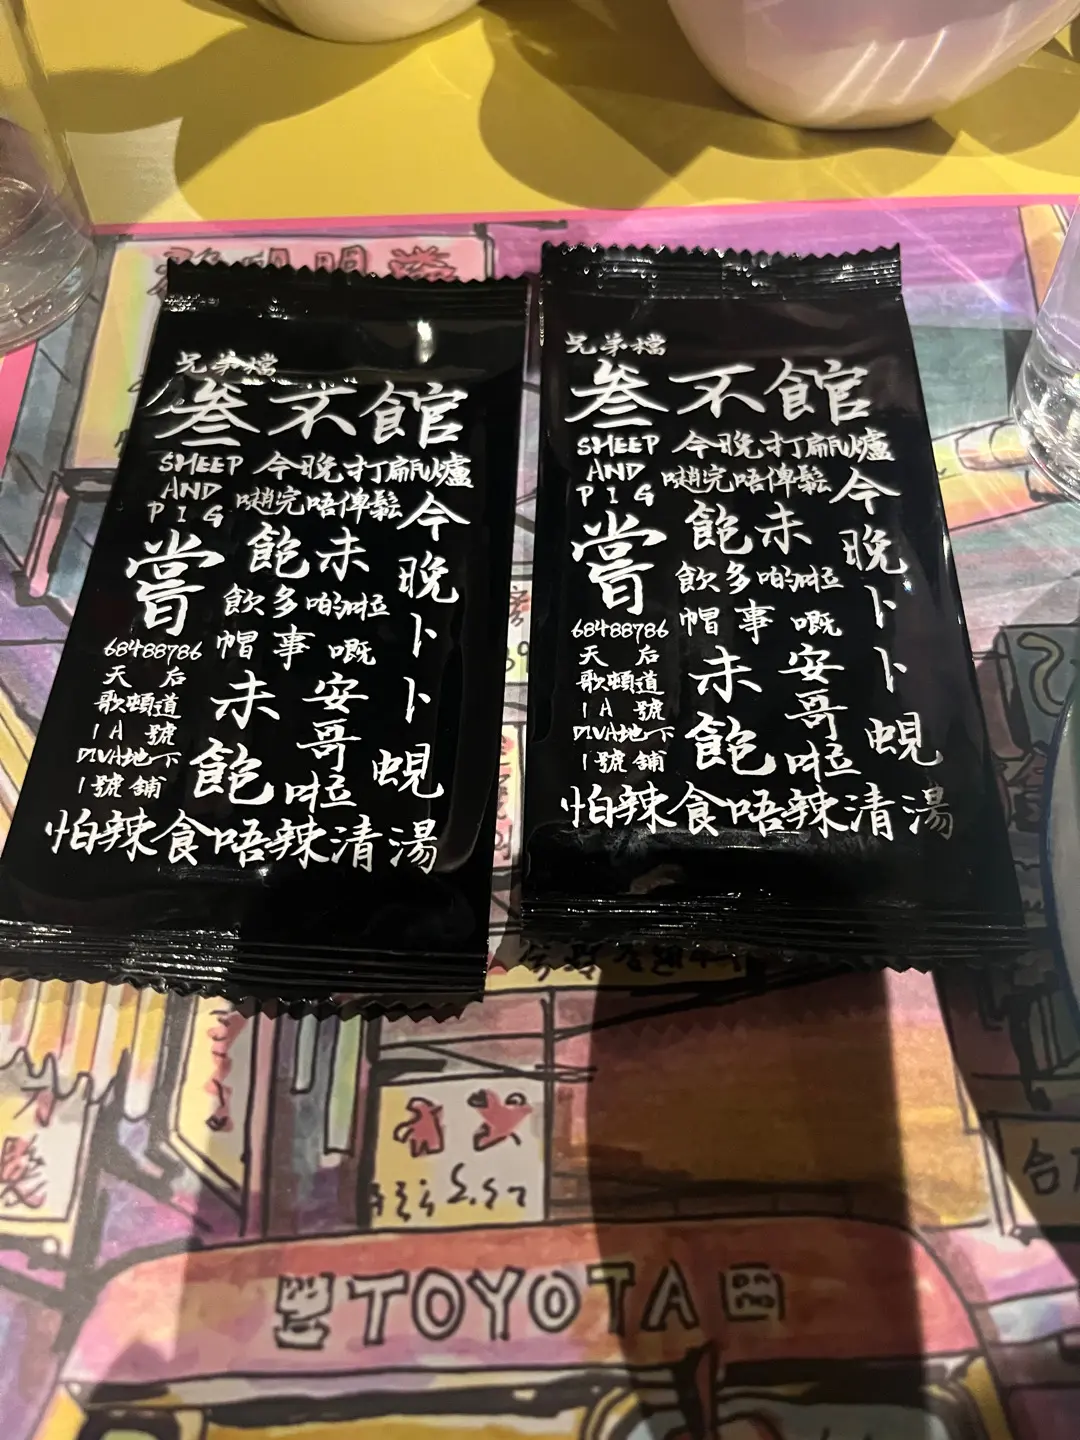 兄弟檔
叁不館
SHEEP AND PIG
今晚打甂爐
嗌完唔俾鬆
嘗
飽未
飲多啲啦
帽事嘅
未飽
安哥啦
今晚卜卜蜆
68488786
天后
歌頓道
1A號
DIVA地下
1號舖
怕辣食唔辣清湯
兄弟檔
叁不館
SHEEP AND PIG
今晚打甂爐
嗌完唔俾鬆
嘗
飽未
飲多啲啦
帽事嘅
未飽
安哥啦
今晚卜卜蜆
68488786
天后
歌頓道
1A號
DIVA地下
1號舖
怕辣食唔辣清湯
TOYOTA